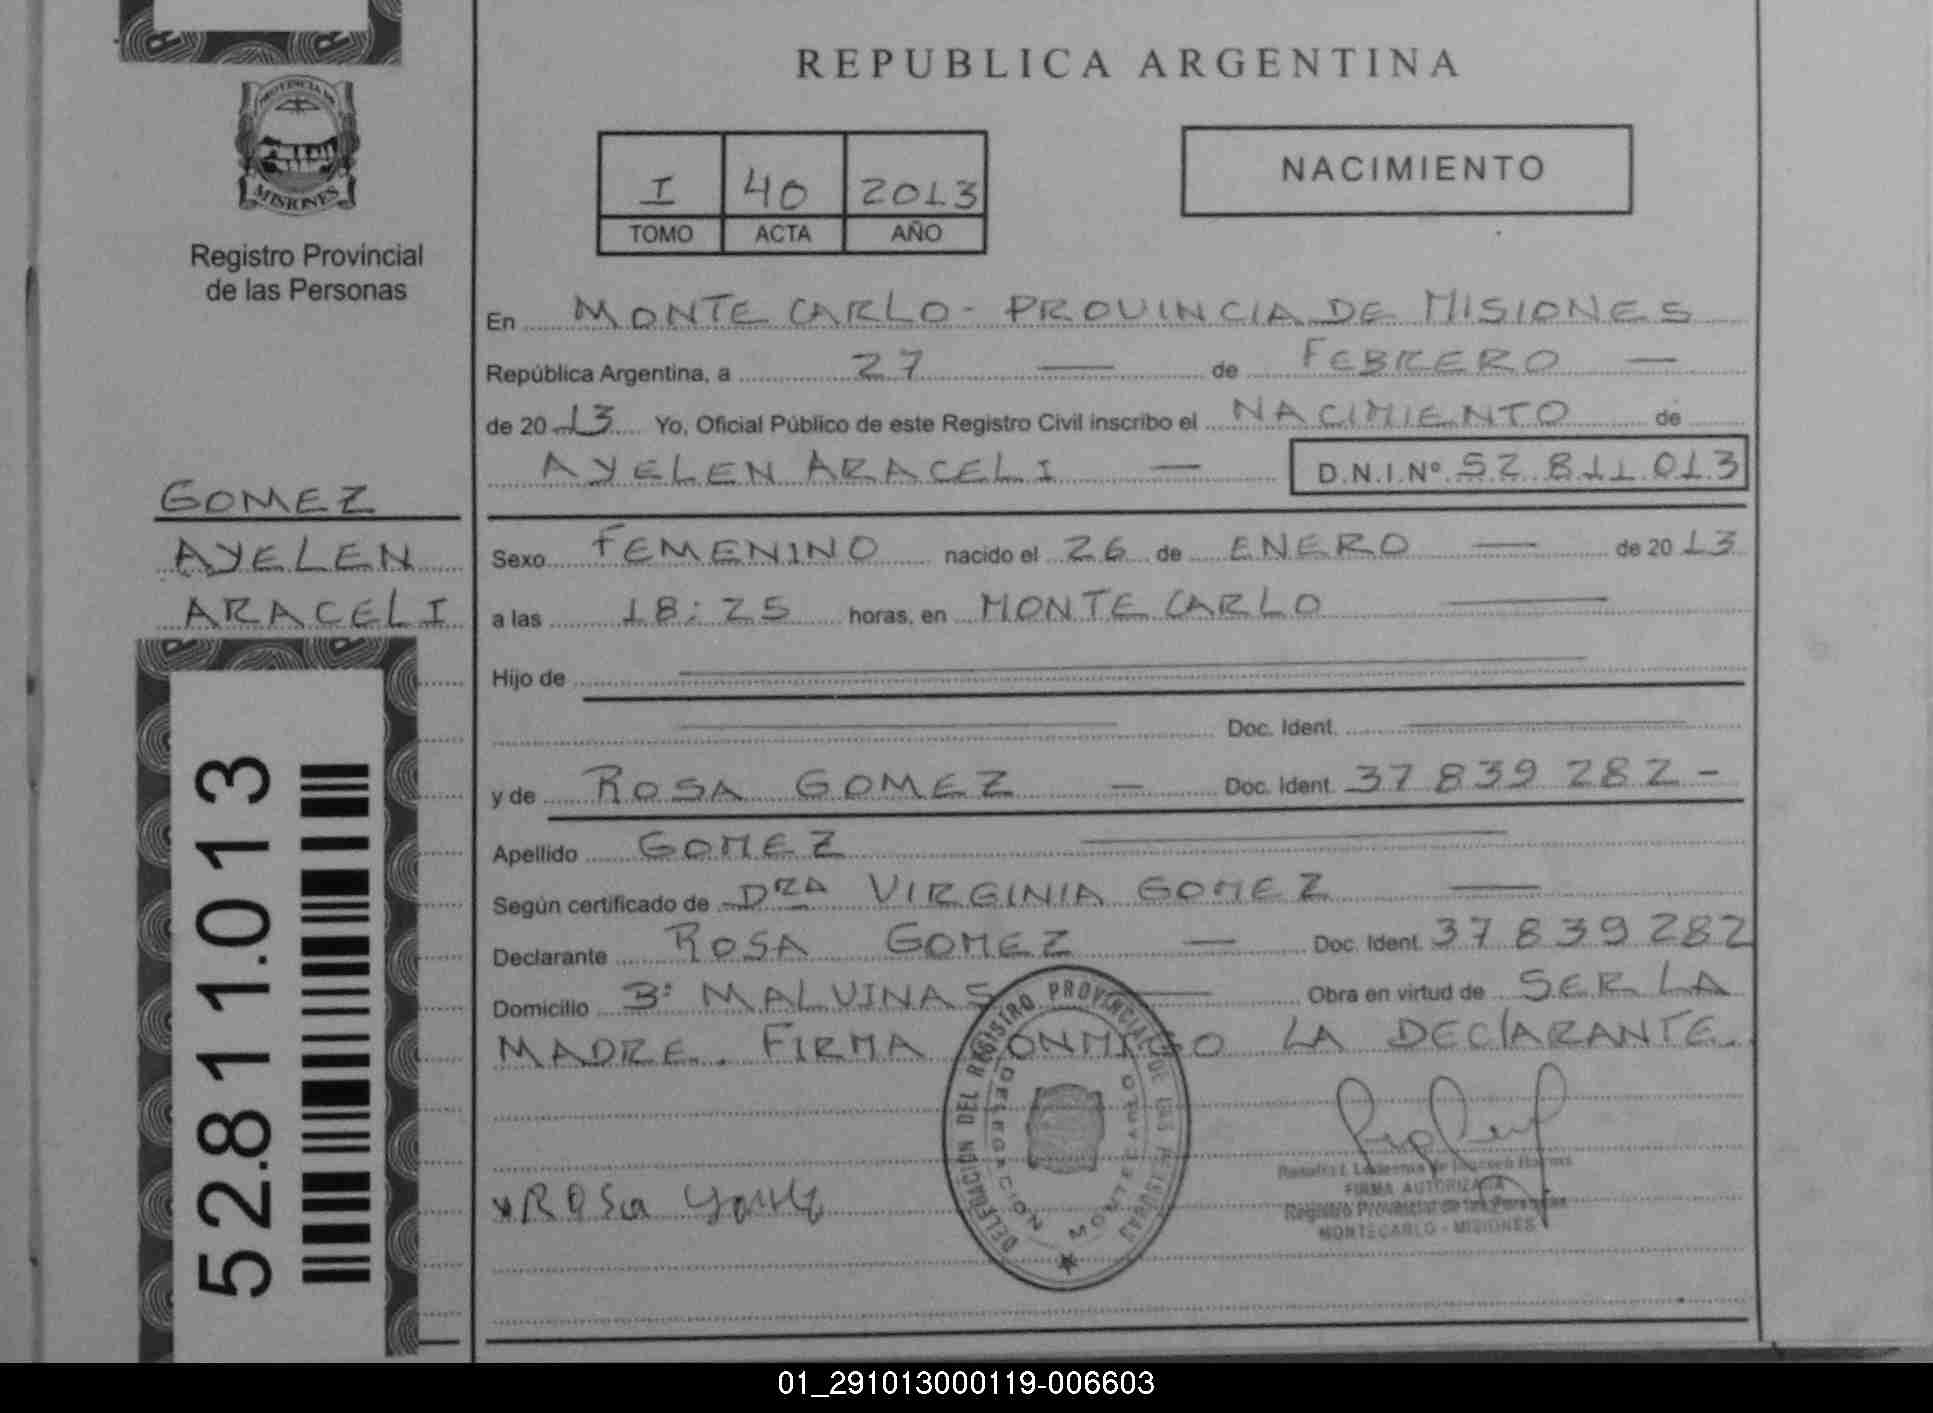 REPUBLICA ARGENTINA
PROVINCIA DE
MISIONES
Registro Provincial
de las Personas
I 40 2013
TOMO ACTA AÑO
NACIMIENTO
En MONTE CARLO - PROVINCIA DE MISIONES
República Argentina, a 27 — de FEBRERO —
de 2013 Yo, Oficial Público de este Registro Civil inscribo el NACIMIENTO de
AYELEN ARACELI — D.N.I.Nº 52.811.013
GOMEZ
AYELEN
ARACELI
52.811.013
Sexo FEMENINO nacido el 26 de ENERO — de 2013
a las 18:25 horas, en MONTE CARLO —
Hijo de —
— Doc. Ident. —
y de ROSA GOMEZ — Doc. Ident. 37 839 282 -
Apellido GOMEZ —
Según certificado de DRA VIRGINIA GOMEZ —
Declarante ROSA GOMEZ — Doc. Ident. 37 839 282
Domicilio Bº MALVINAS — Obra en virtud de SER LA
MADRE. FIRMA CONMIGO LA DECLARANTE.
DELEGACION DEL REGISTRO PROVINCIAL DE LAS PERSONAS
DELEGACION MONTECARLO
FIRMA AUTORIZADA
Registro Provincial de las Personas
MONTECARLO - MISIONES
x Rosa
01_291013000119-006603